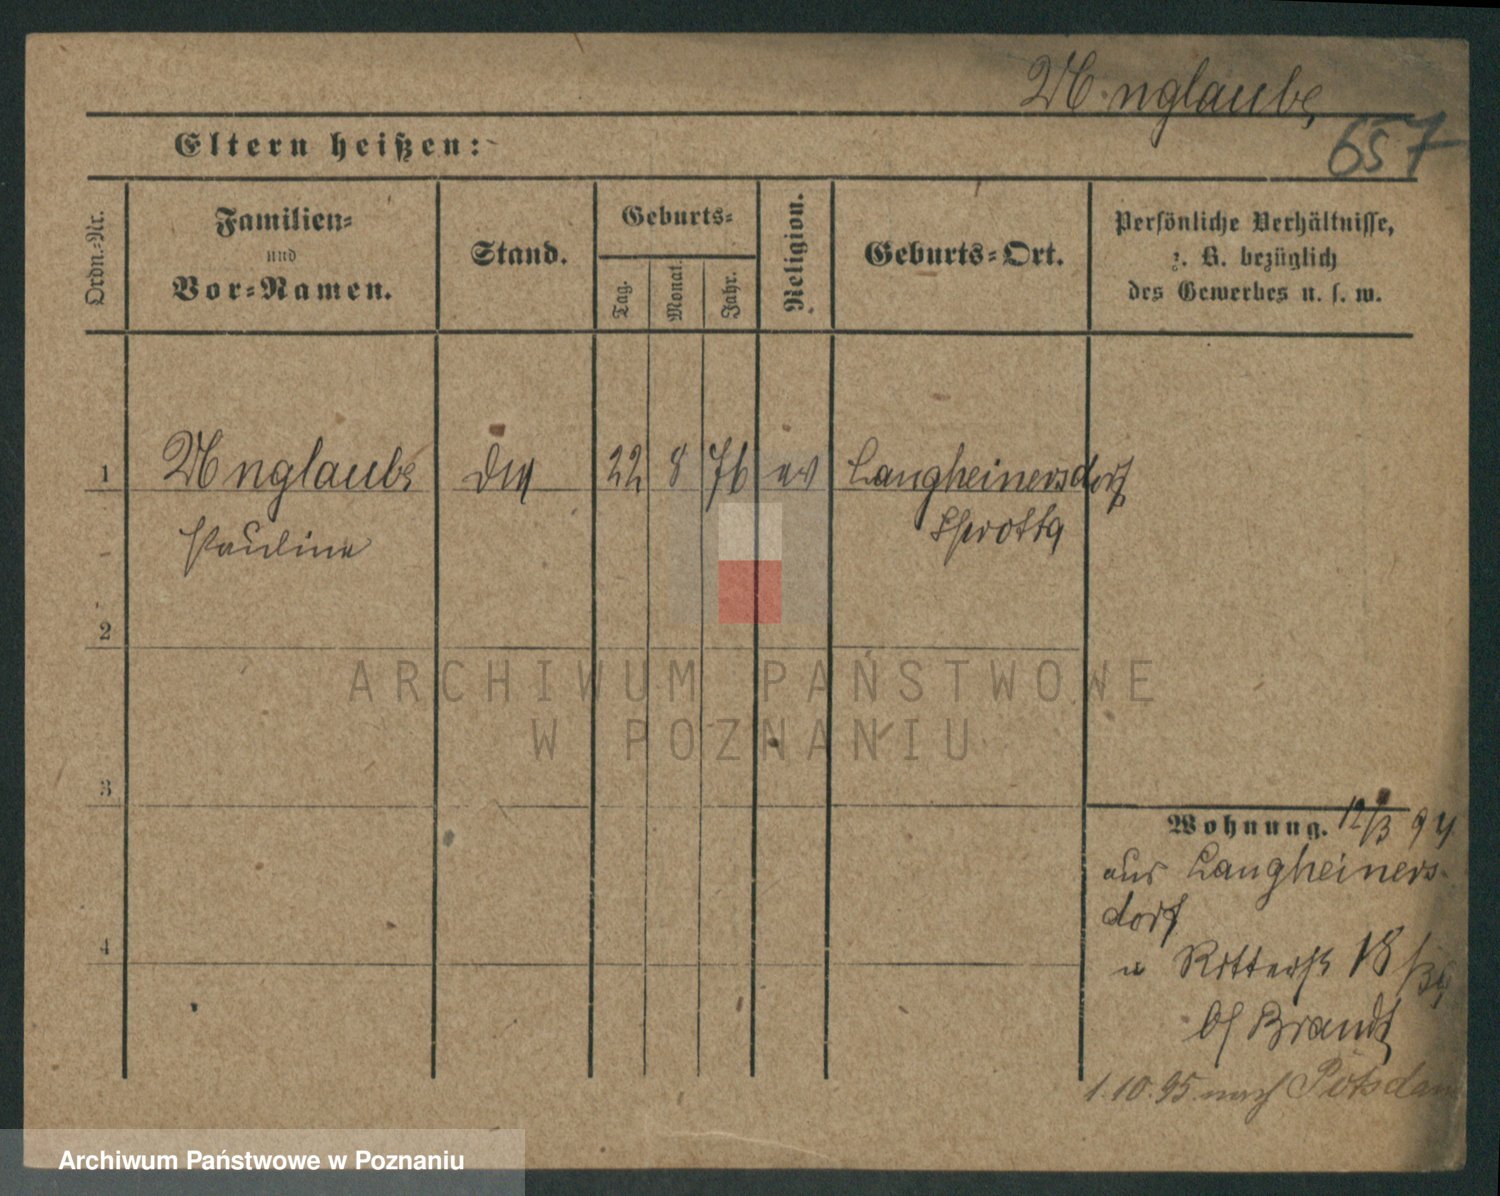 Unglaube
657
Eltern heißen:
Ordn.-Nr.
Familien-
und
Vor-Namen.
Stand.
Geburts-
Tag.
Monat.
Jahr.
Religion.
Geburts-Ort.
Persönliche Verhältnisse,
z. B. bezüglich
des Gewerbes u. s. w.
1 Unglaube 22 8 76 ev Langheinersdorf
Pauline Sprotta
2
3
4
Wohnung. 12/3 94
aus Langheiners-
dorf
n Ritterst 18
bei Brandt
1.10.95. nach Potsdam
ARCHIWUM PAŃSTWOWE
W POZNANIU
Archiwum Państwowe w Poznaniu